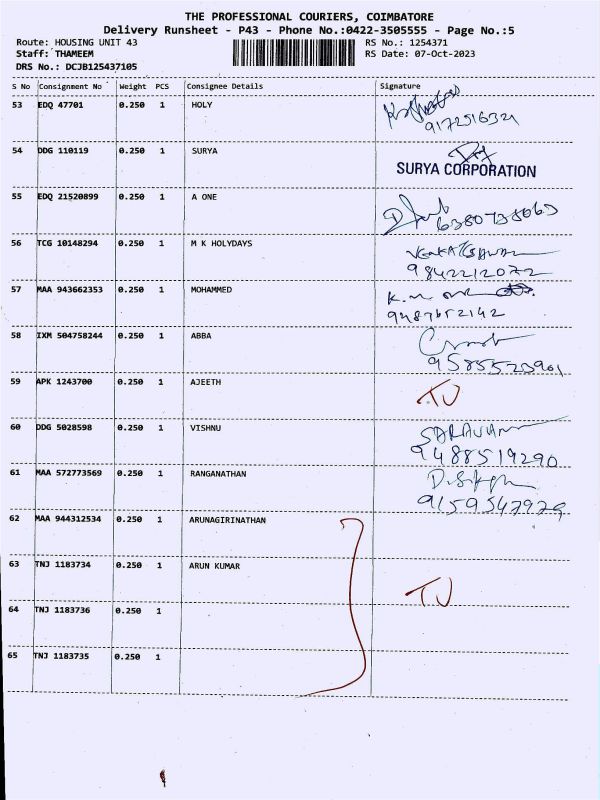 THE PROFESSIONAL COURIERS, COIMBATORE
Delivery Runsheet - P43 - Phone No.:0422-3505555 - Page No.:5
Route: HOUSING UNIT 43 RS No.: 1254371
Staff: THAMEEM RS Date: 07-Oct-2023
DRS No.: DCJB125437105
S No Consignment No Weight PCS Consignee Details Signature
53 EDQ 47701 0.250 1 HOLY
9172516321
54 DDG 110119 0.250 1 SURYA
SURYA CORPORATION
55 EDQ 21520899 0.250 1 A ONE
56 TCG 10148294 0.250 1 M K HOLYDAYS
9842212072
57 MAA 943662353 0.250 1 MOHAMMED
9487652142
58 IXM 504758244 0.250 1 ABBA
59 APK 1243700 0.250 1 AJEETH
60 DDG 5028598 0.250 1 VISHNU
9488519290
61 MAA 572773569 0.250 1 RANGANATHAN
9159547979
62 MAA 944312534 0.250 1 ARUNAGIRINATHAN
63 TNJ 1183734 0.250 1 ARUN KUMAR
64 TNJ 1183736 0.250 1
65 TNJ 1183735 0.250 1